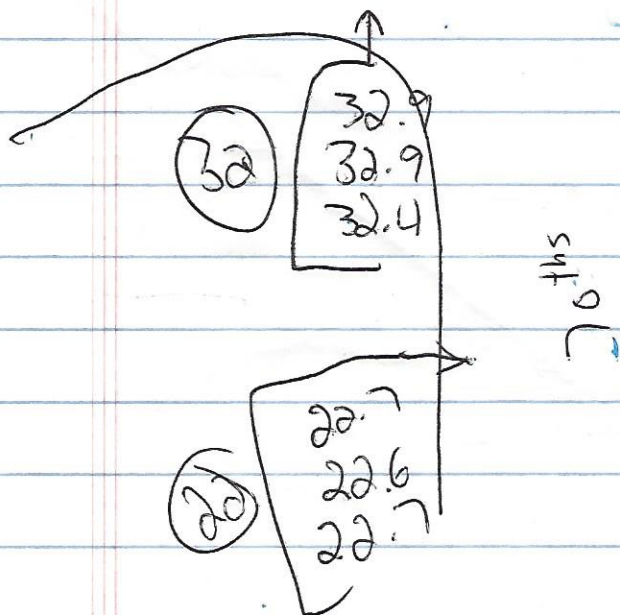 32
32.9
32.9
32.4
22
22.7
22.6
22.7